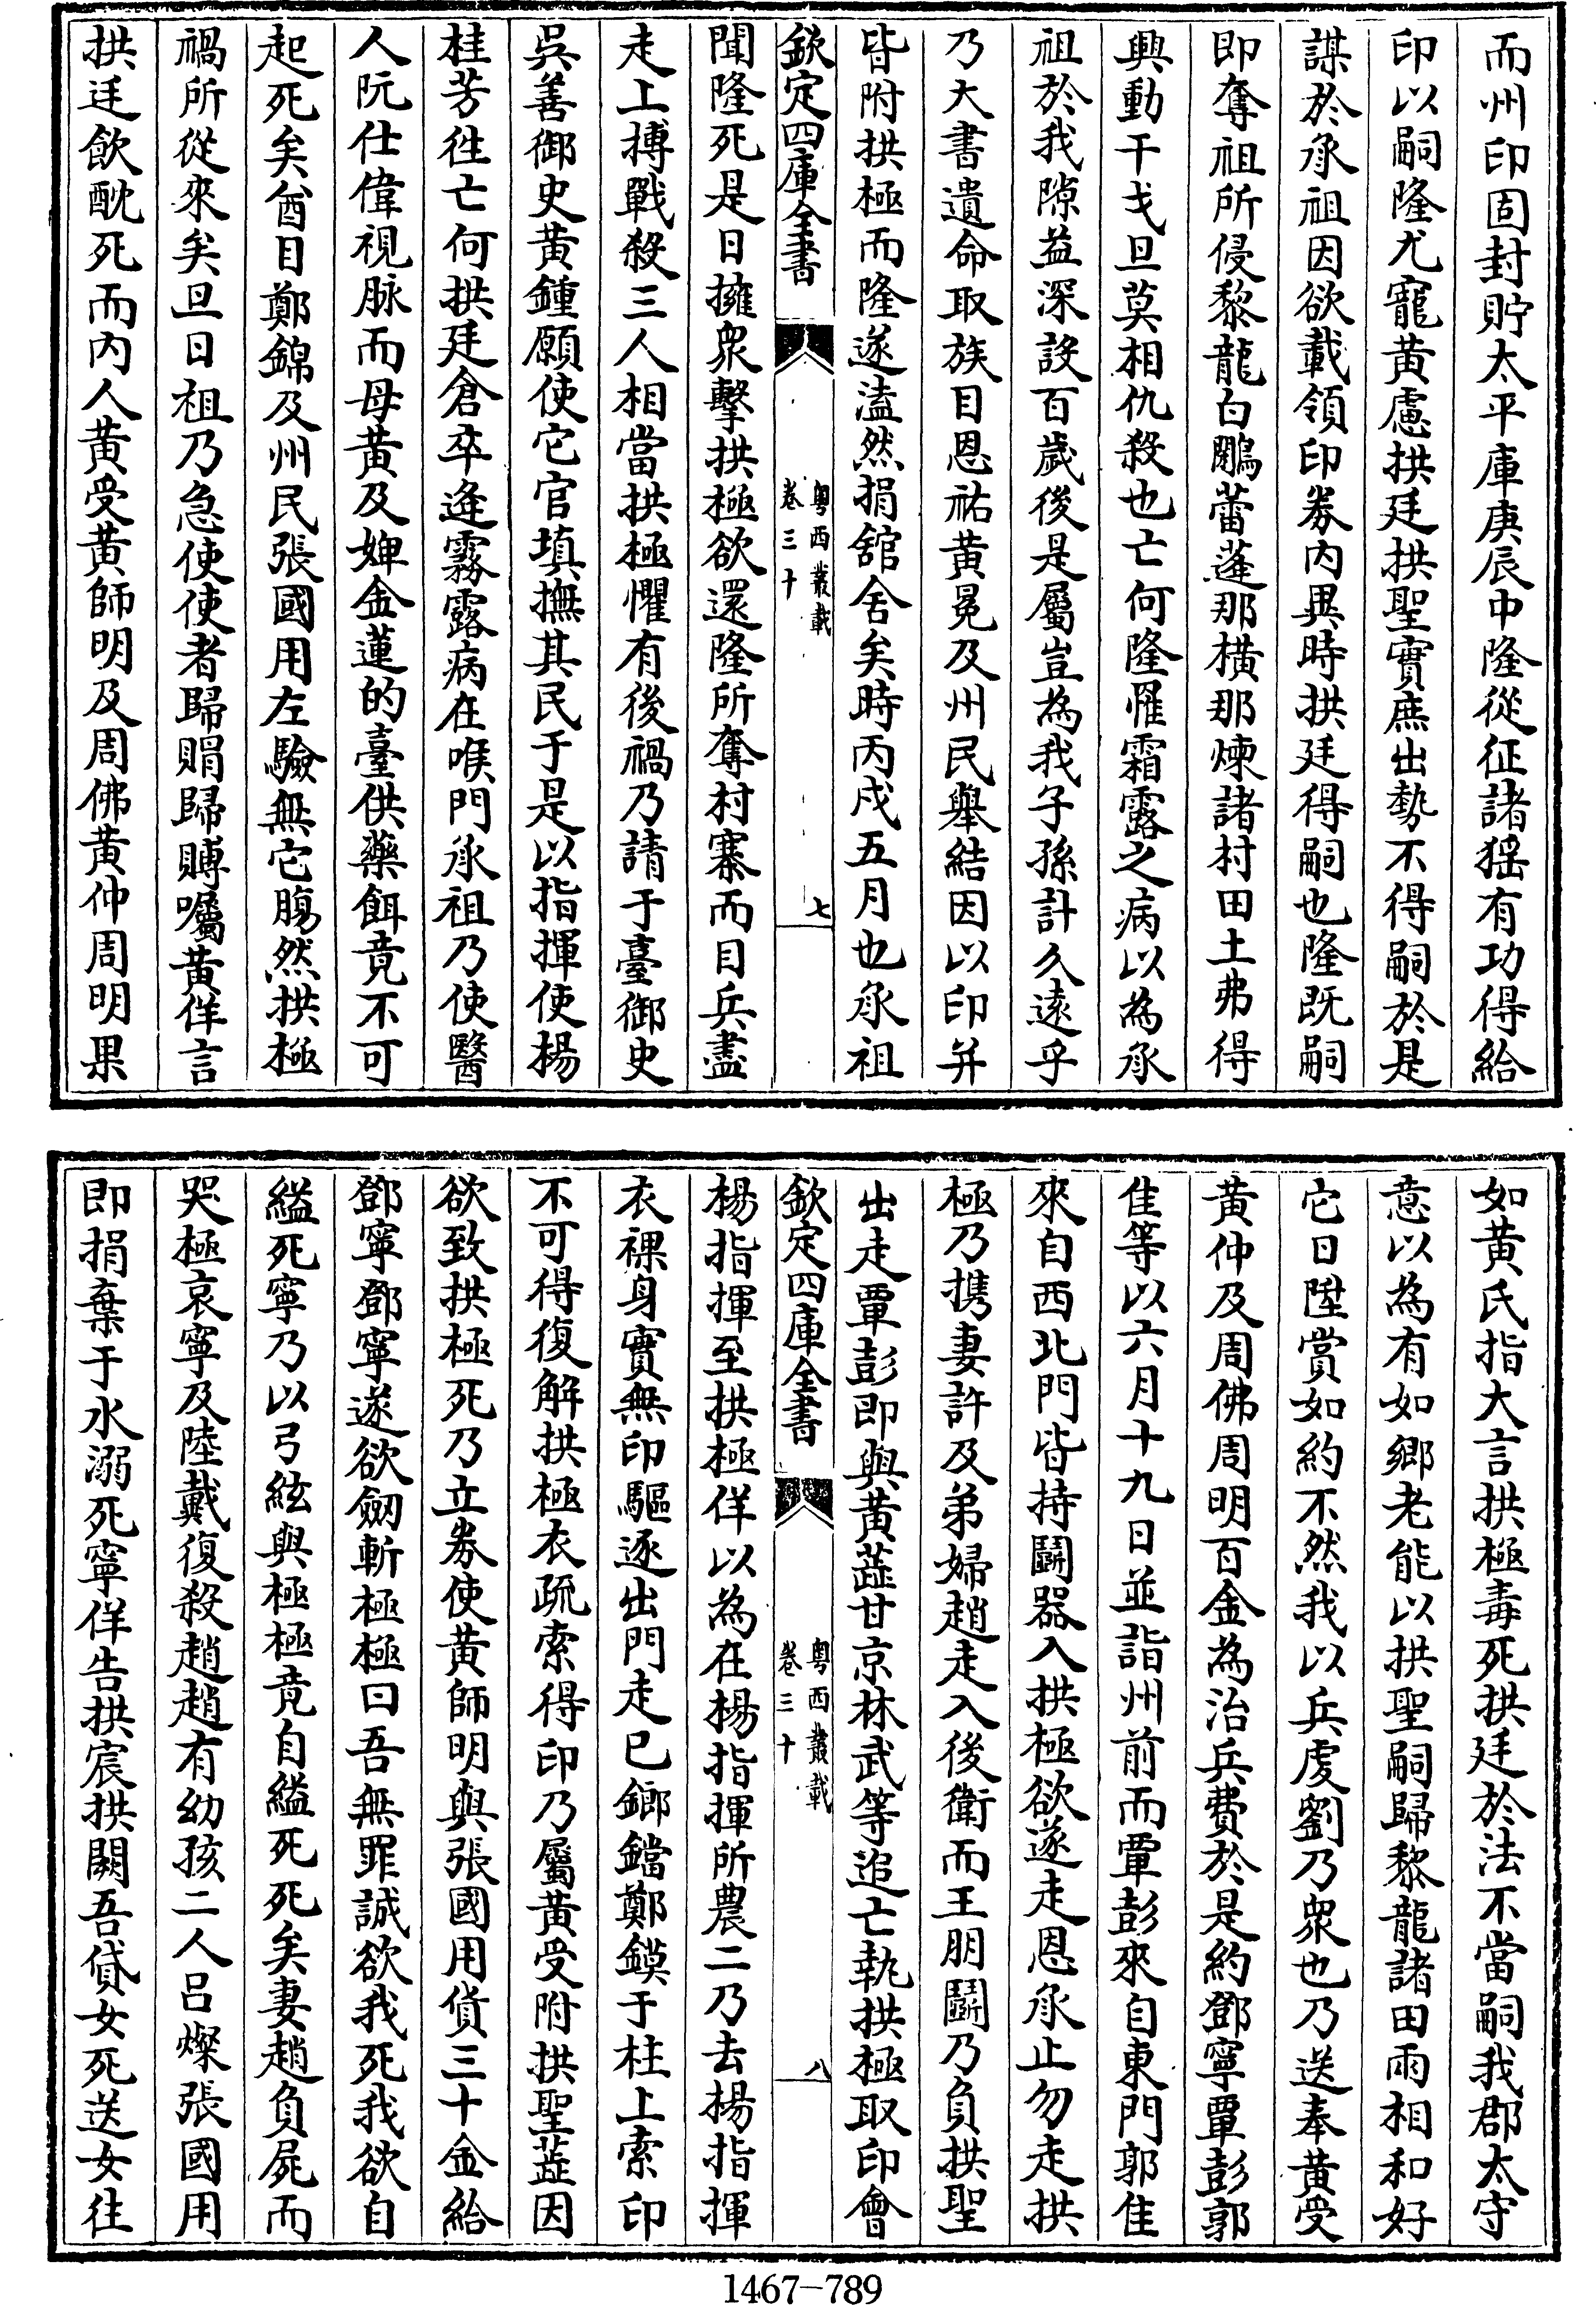 而州印固封貯太平庫庚辰中隆從征諸猺有功得給
印以嗣隆尤寵黄慮拱廷拱聖實庶出勢不得嗣於是
謀於承祖因欲載領印券内異時拱廷得嗣也隆既嗣
即奪祖所侵黎龍白鵰蕾蓬那横那煉諸村田土弗得
興動干戈旦莫相仇殺也亡何隆罹霜露之病以為承
祖於我隙益深設百歲後是屬豈為我子孫計久遠乎
乃大書遺命取族目恩祐黄冕及州民舉結因以印并
皆附拱極而隆遂溘然捐舘舍矣時丙戌五月也承祖
欽定四庫全書
粤西叢載
卷三十
七
聞隆死是日擁衆擊拱極欲還隆所奪村寨而目兵盡
走上搏戰殺三人相當拱極懼有後禍乃請于臺御史
吳善御史黄鍾願使它官填撫其民于是以指揮使楊
桂芳徃亡何拱廷倉卒逢霧露病在喉門承祖乃使醫
人阮仕偉視脉而母黄及婢金蓮的臺供藥餌竟不可
起死矣酋目鄭錦及州民張國用左驗無它腸然拱極
禍所從來矣旦日祖乃急使使者歸賵歸賻囑黄佯言
拱廷飲酖死而内人黄受黄師明及周佛黄仲周明果
如黄氏指大言拱極毒死拱廷於法不當嗣我郡太守
意以為有如鄉老能以拱聖嗣歸黎龍諸田兩相和好
它日陞賞如約不然我以兵虔劉乃衆也乃送奉黄受
黄仲及周佛周明百金為治兵費於是約鄧寧覃彭郭
隹等以六月十九日並詣州前而覃彭來自東門郭隹
來自西北門皆持鬬器入拱極欲遂走恩承止勿走拱
極乃携妻許及弟婦趙走入後衛而王朋鬬乃負拱聖
出走覃彭即與黄蕋甘京林武等追亡執拱極取印會
欽定四庫全書
粤西叢載
卷三十
八
楊指揮至拱極佯以為在楊指揮所農二乃去楊指揮
衣裸身實無印驅逐出門走已鎯鐺鄭鏌于柱上索印
不可得復解拱極衣疏索得印乃屬黄受附拱聖蕋因
欲致拱極死乃立券使黄師明與張國用貨三十金給
鄧寧鄧寧遂欲劒斬極極曰吾無罪誠欲我死我欲自
縊死寧乃以弓絃與極極竟自縊死死矣妻趙負屍而
哭極哀寧及陸戴復殺趙趙有幼孩二人呂燦張國用
即捐棄于水溺死寧佯告拱宸拱闕吾貸女死送女往
1467-789